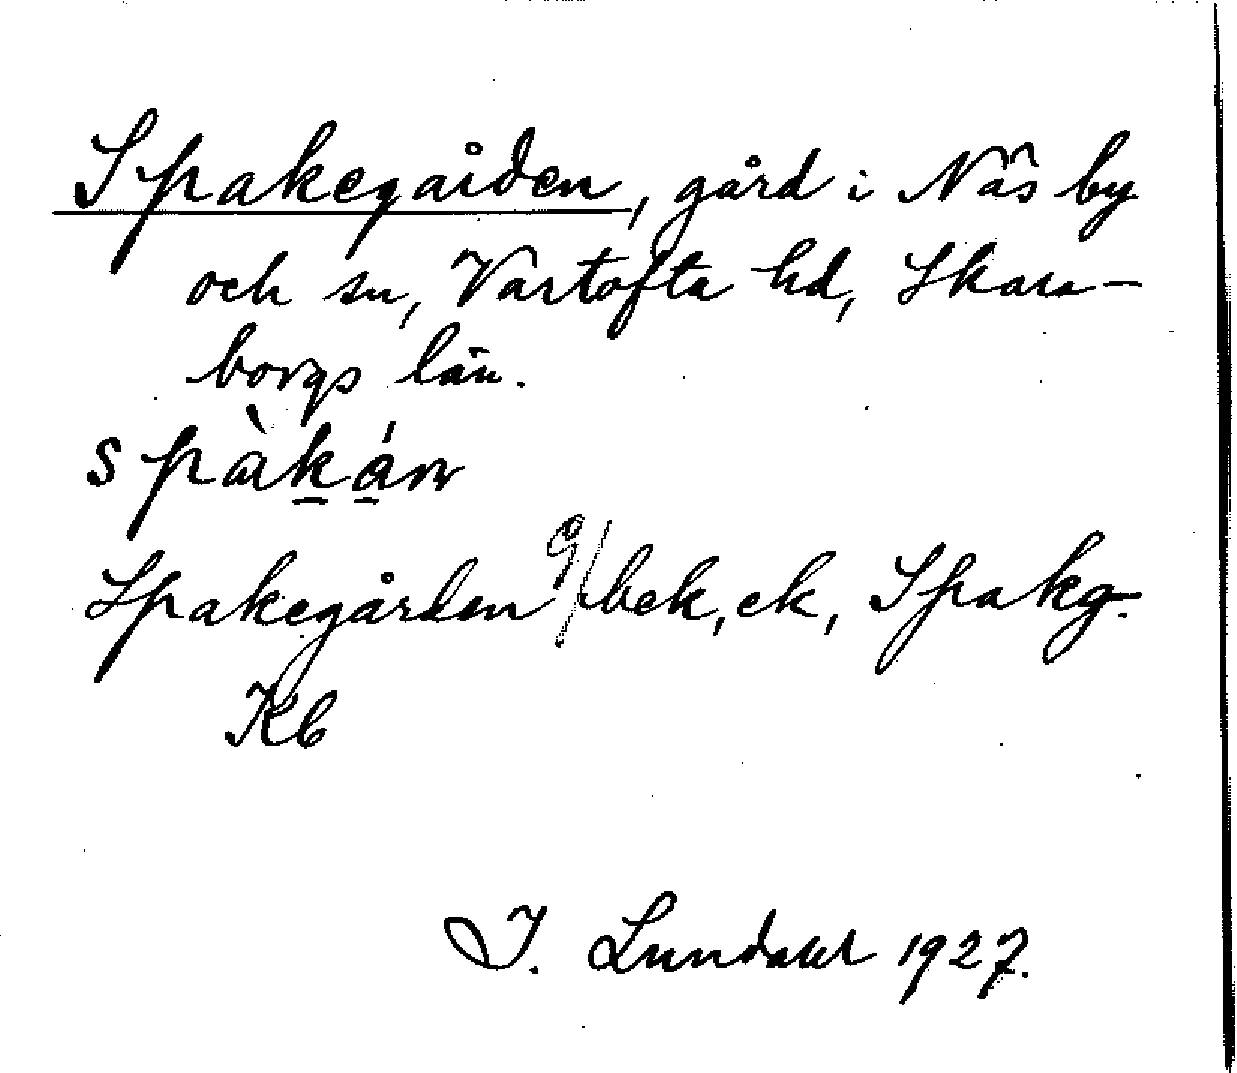 Spakegården, gård i Näs by
och sn, Vartofta hd, Skara-
borgs län.
Spakegården g/bek, ek, Spakg.
Kb
I. Lundahl 1927.